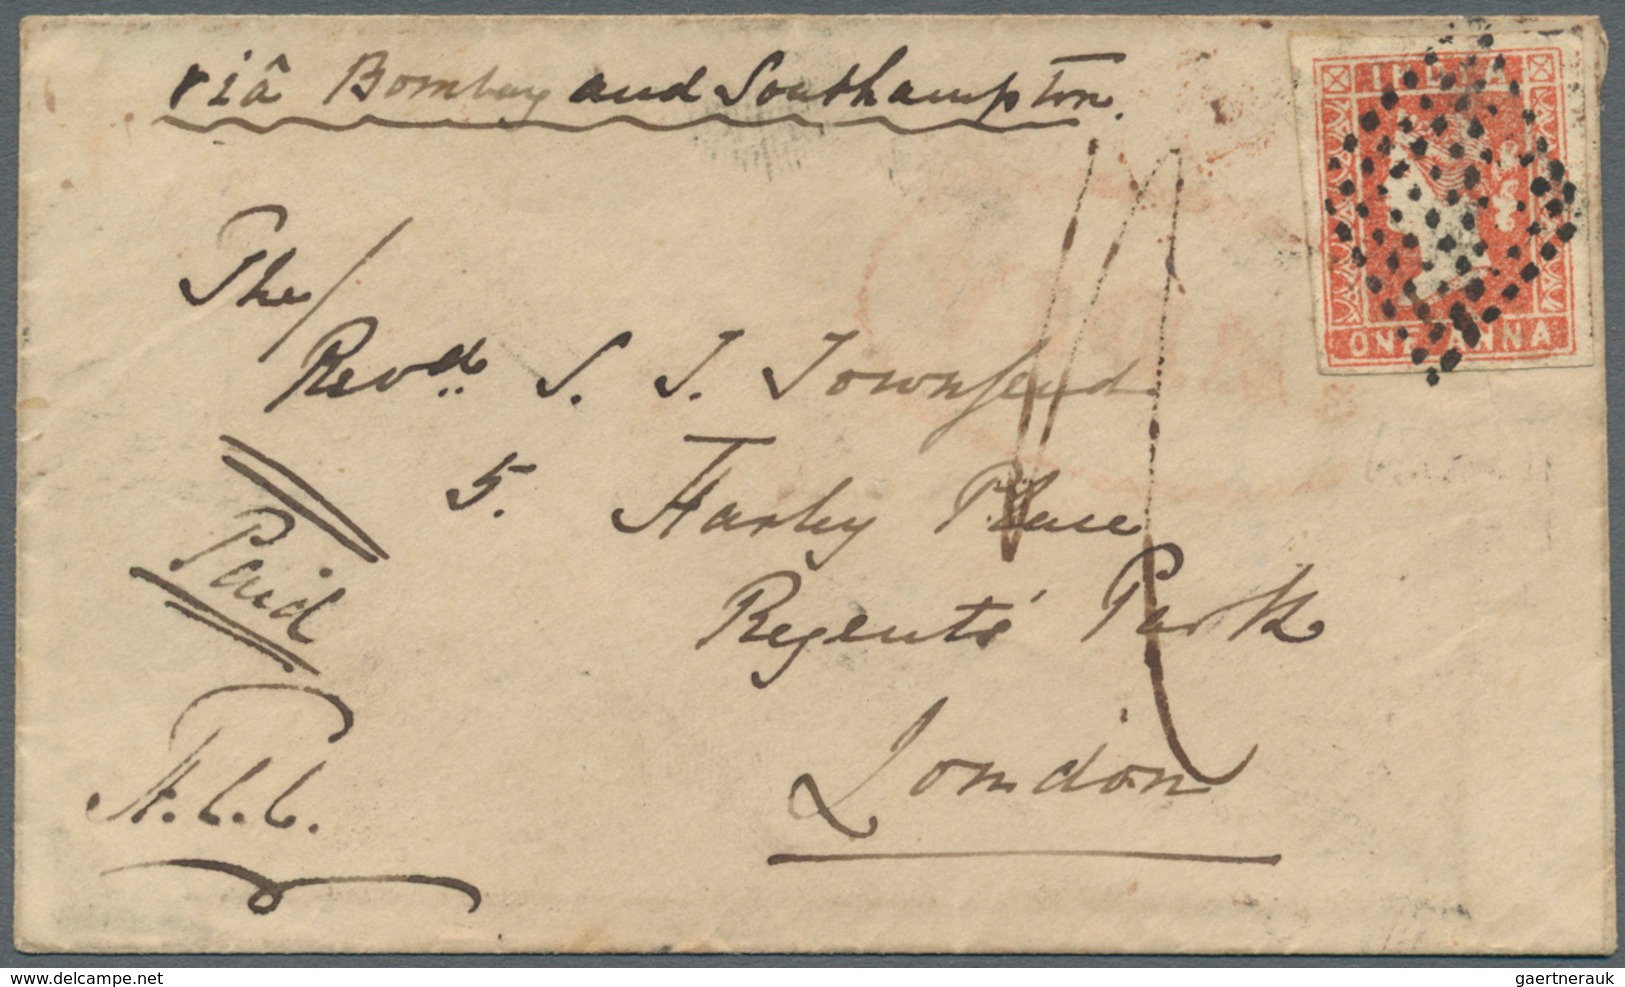 viâ Bombay and Southampton.
INDIA
ONE ANNA
The/
Revd. S. J. Townsend
5. Harley Place
Regent's Park
London
Paid
delcampe.net
gaertnerauk